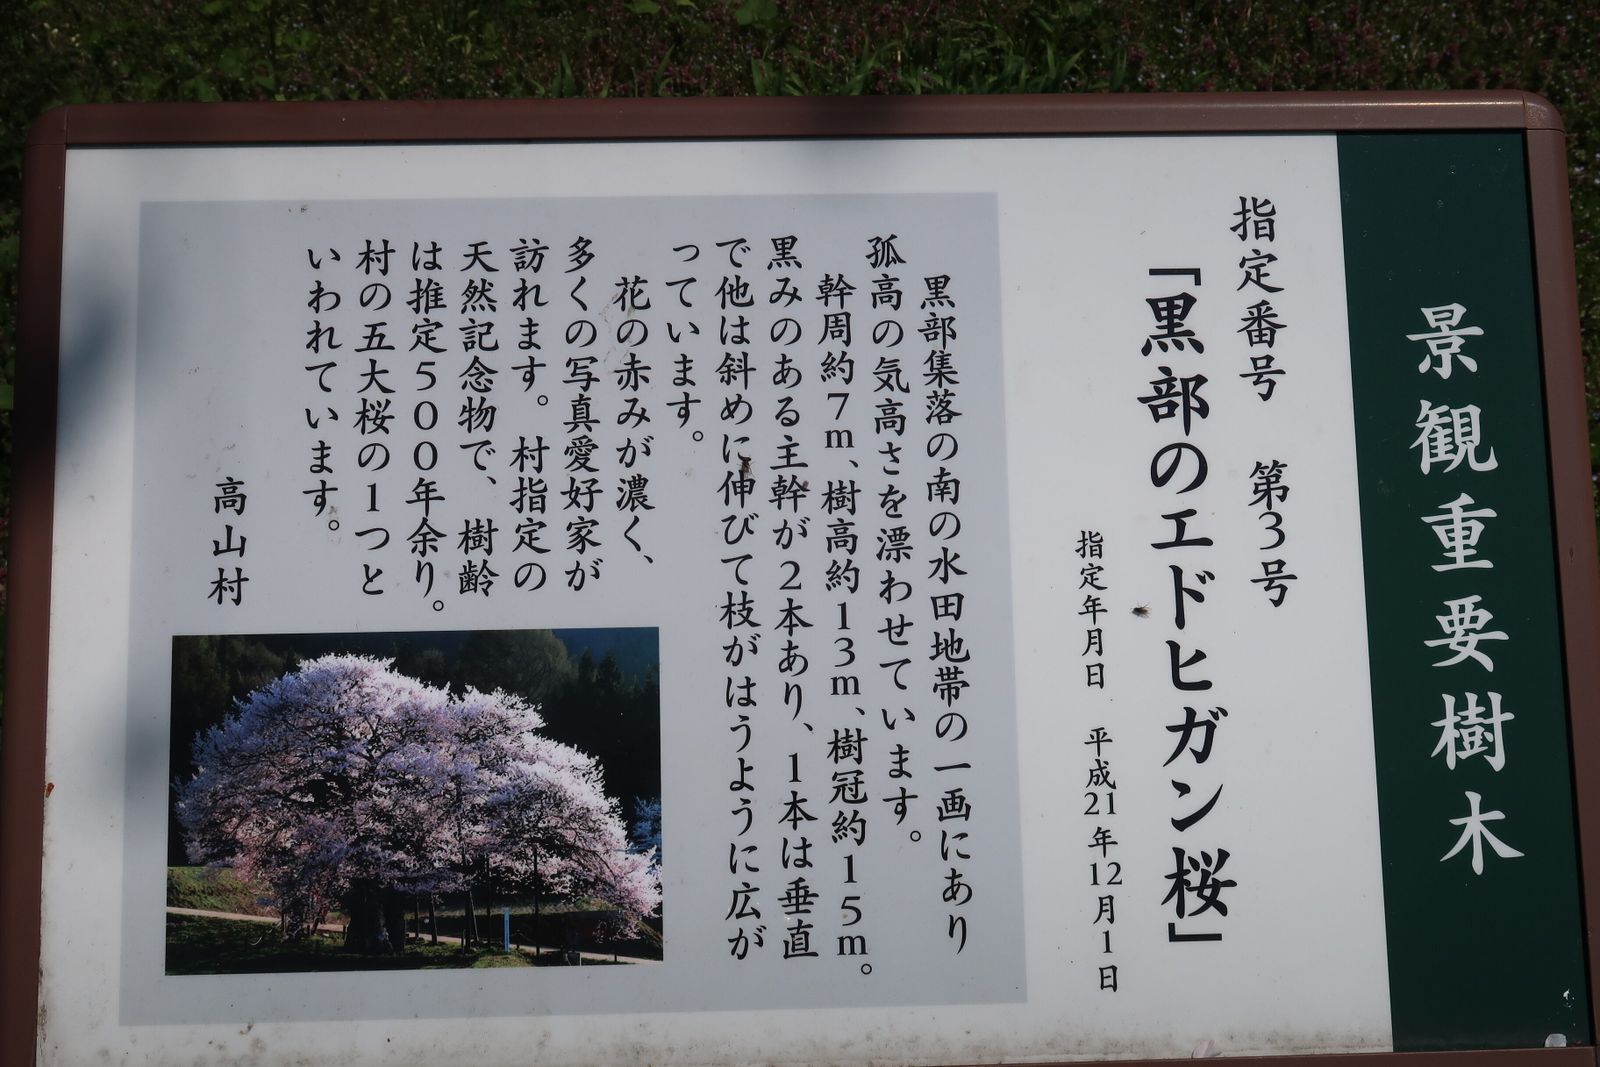 景観重要樹木
指定番号　第3号
「黒部のエドヒガン桜」
指定年月日　平成21年12月1日
黒部集落の南の水田地帯の一画にあり
孤高の気高さを漂わせています。
幹周約7m、樹高約13m、樹冠約15m。
黒みのある主幹が2本あり、1本は垂直
で他は斜めに伸びて枝がはうように広が
っています。
花の赤みが濃く、
多くの写真愛好家が
訪れます。村指定の
天然記念物で、樹齢
は推定500年余り。
村の五大桜の1つと
いわれています。
高山村